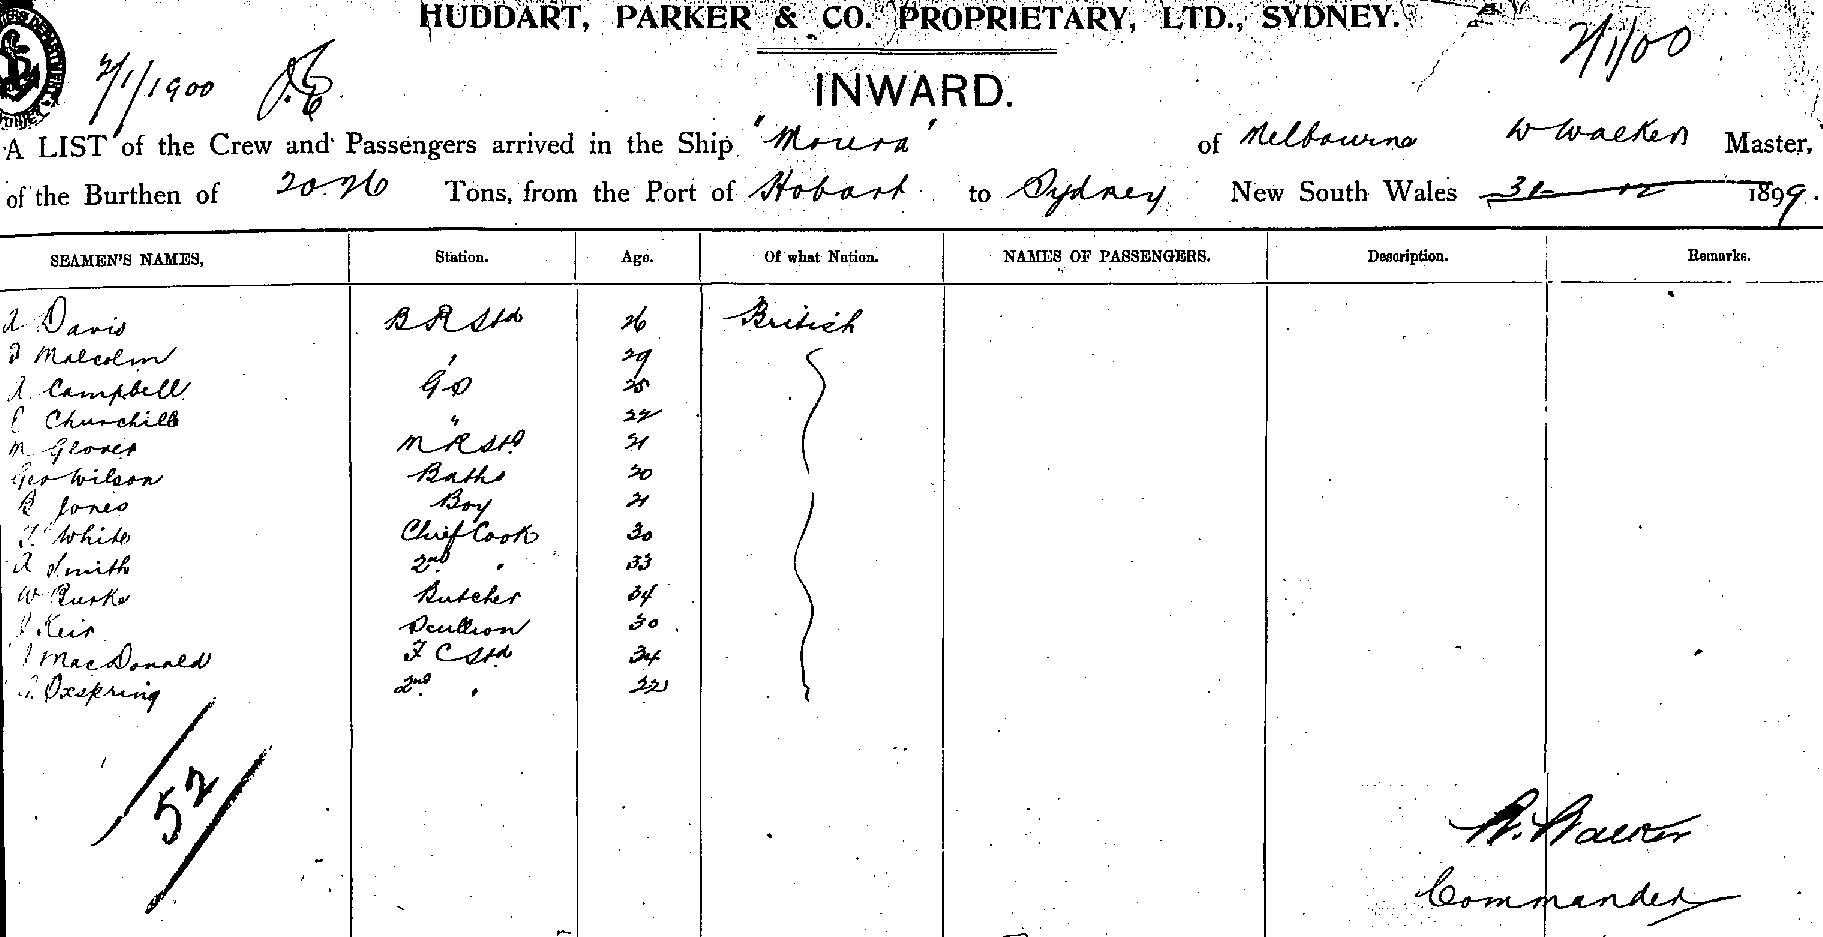 HUDDART, PARKER & CO. PROPRIETARY, LTD., SYDNEY.
2/1/1900 2/1/00
INWARD.
A LIST of the Crew and Passengers arrived in the Ship "Moura" of Melbourne W Walker Master,
of the Burthen of 2026 Tons, from the Port of Hobart to Sydney New South Wales 31 12 1899.
SEAMEN'S NAMES, Station. Age. Of what Nation. NAMES OF PASSENGERS. Description. Remarks.
A Davis B R Std 26 British
Malcolm " 29
A Campbell G S 25
C Churchill " 22
M Glover M R Std 21
Geo Wilson Baths 20
B Jones Boy 21
T. White Chief Cook 30
A Smith 2nd " 33
W Burke Butcher 34
J Keir Scullion 30
J MacDonald F C Std 34
Oxspring 2nd " 22
52
W. Walker
Commander